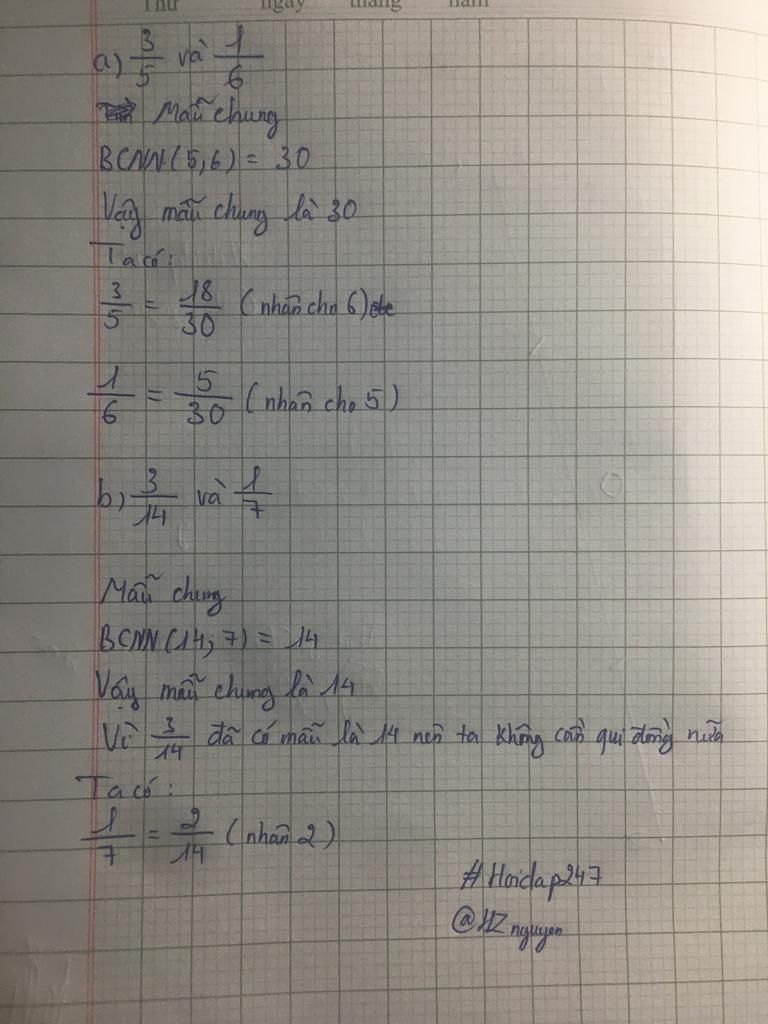 Thứ ngày tháng năm
a) 3/5 và 1/6
Mẫu chung
BCNN(5,6) = 30
Vậy mẫu chung là 30
Ta có:
3/5 = 18/30 (nhân cho 6)
1/6 = 5/30 (nhân cho 5)
b) 3/14 và 1/7
Mẫu chung
BCNN(14;7) = 14
Vậy mẫu chung là 14
Vì 3/14 đã có mẫu là 14 nên ta không cần qui đồng nữa
Ta có:
1/7 = 2/14 (nhân 2)
#Hoidap247
@HZnguyen